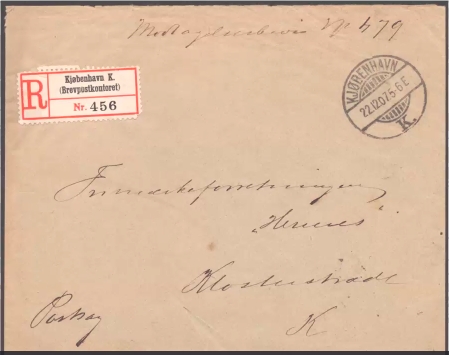 Modtagelsesbevis No 479
R
Kjøbenhavn K.
(Brevpostkontoret)
Nr. 456
KJØBENHAVN
22.12.07.5-6E
K.
Frimærkeforretningen
„Hermes"
Klosterstræde
K
Postsag